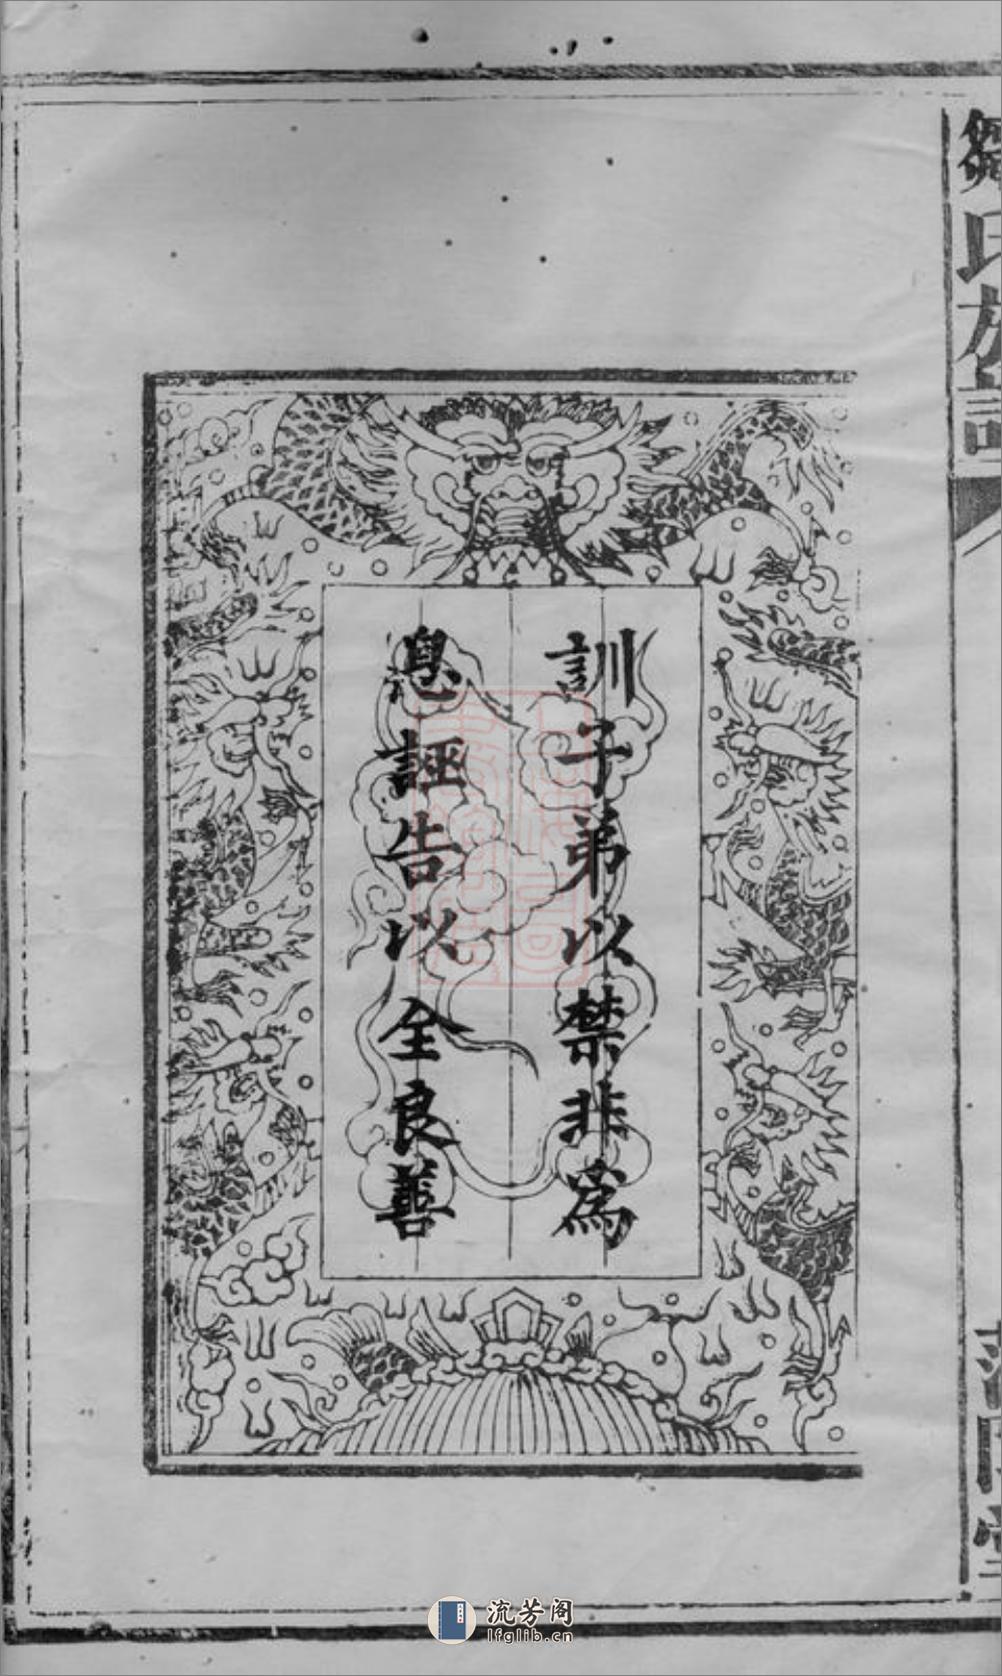 訓子弟以禁非為
息誣告以全良善
鄒氏族譜
流芳阁
lfglib.cn